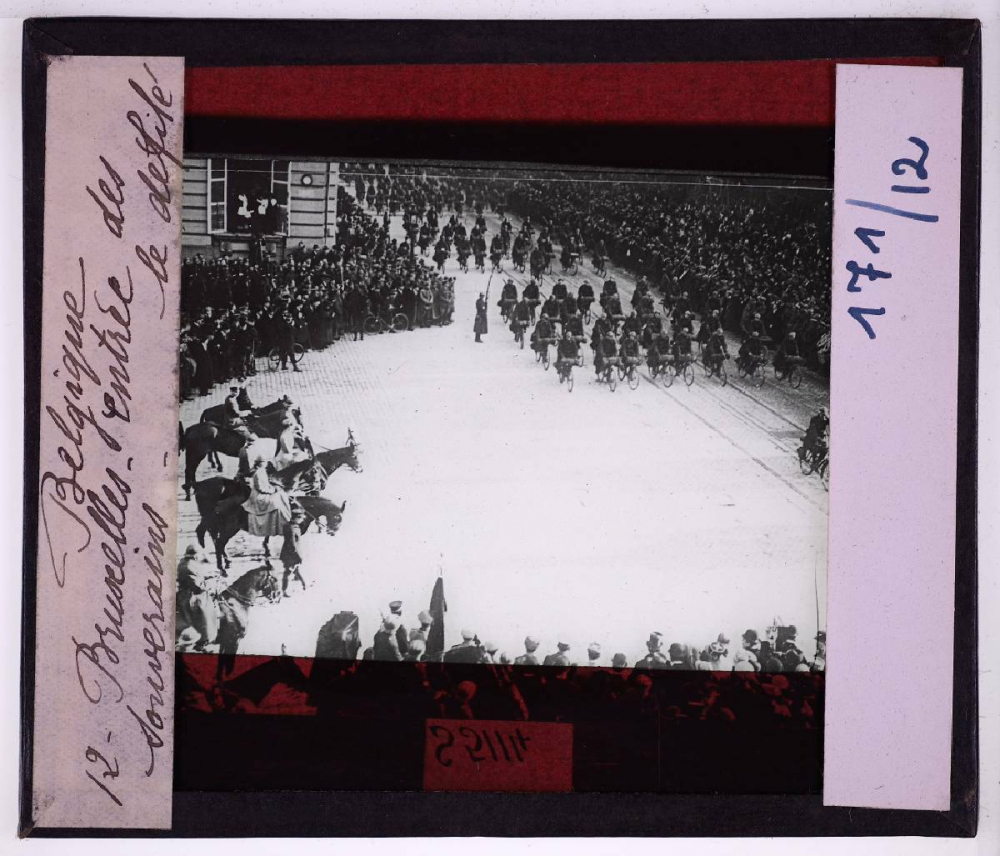 Belgique
12- Bruxelles - Entrée des
souverains - le défilé
171/12
S 5114